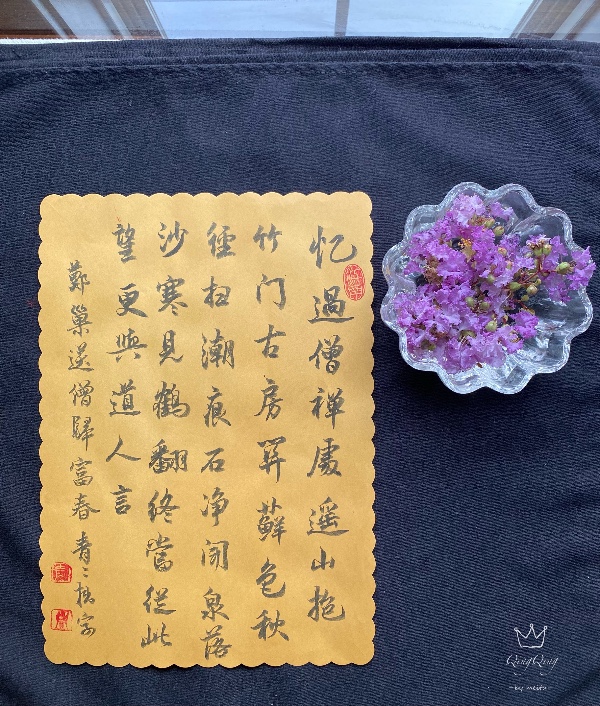 忆過僧禅處遥山抱
竹门古房關蘚色秋
徑扫潮痕石净闻泉落
沙寒見鶴翻终當從此
望更與道人言
鄭巢送僧歸富春青々
QingQing
by meitu